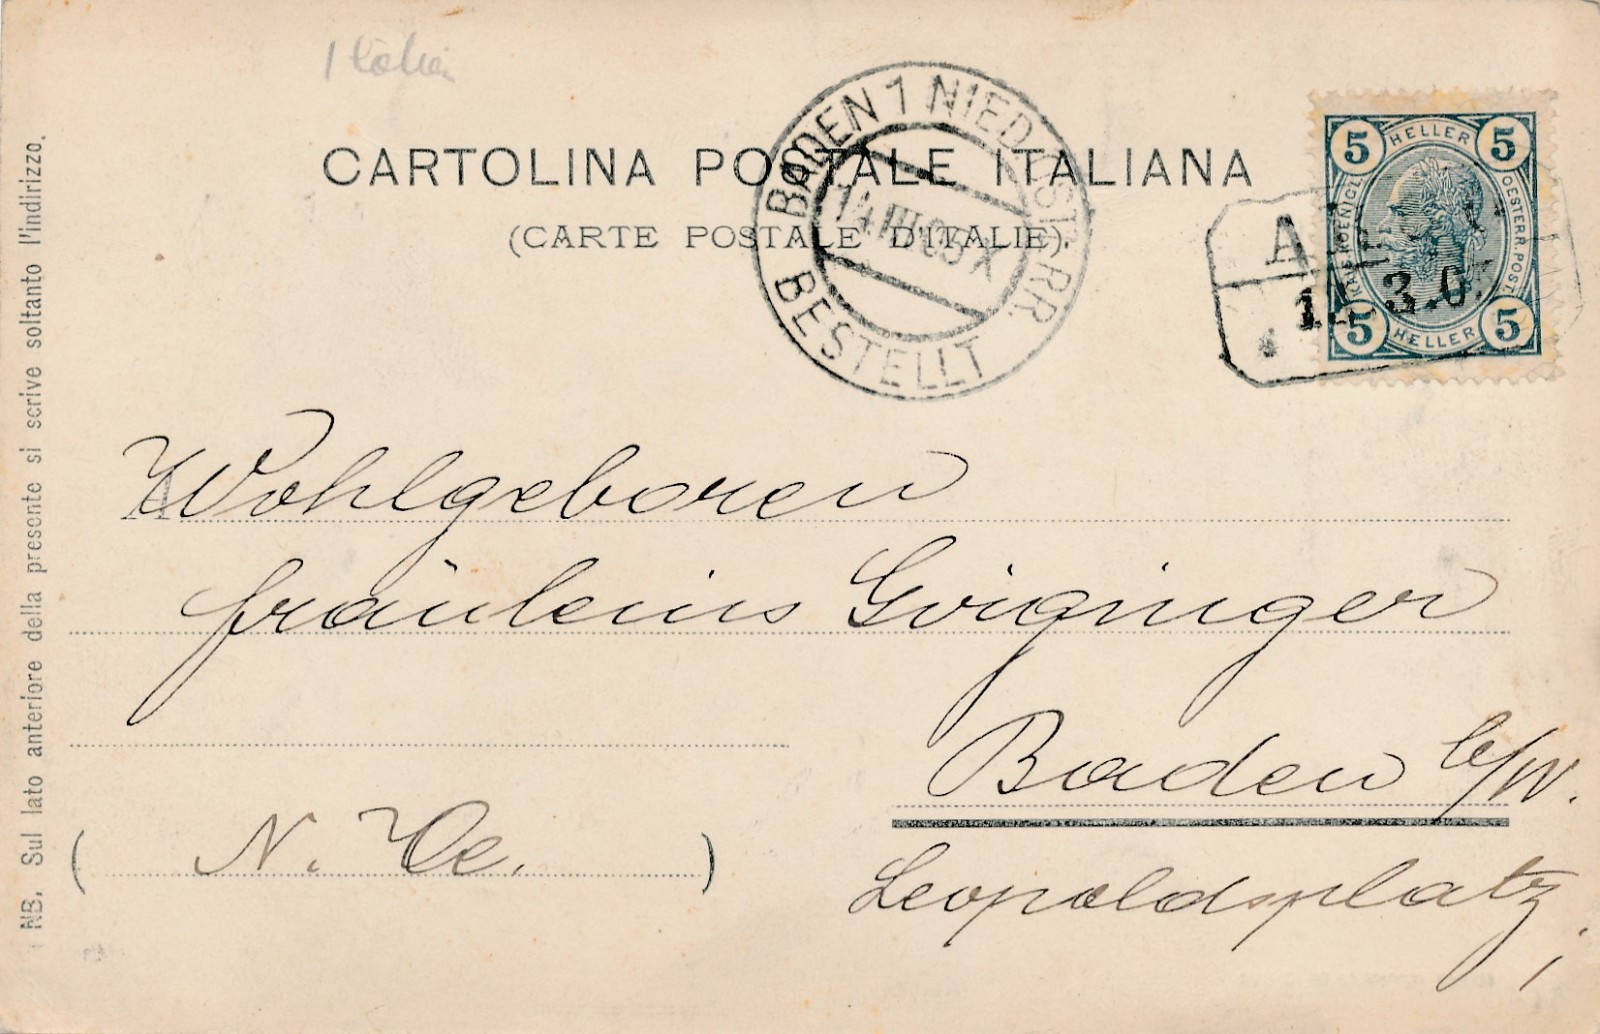 Italien
CARTOLINA POSTALE ITALIANA
(CARTE POSTALE D'ITALIE).
BADEN 1 NIED. ÖSTERR.
14 III 05 X
BESTELLT
5 HELLER 5
KAIS. KOENIGL.
OESTERR. POST.
5 HELLER 5
A
3.0
NB. Sul lato anteriore della presente si scrive soltanto l'indirizzo.
A
Wohlgeboren
fräuleins Gvigniger
Baden b/W.
( N. Oe. )
Leopoldsplatz